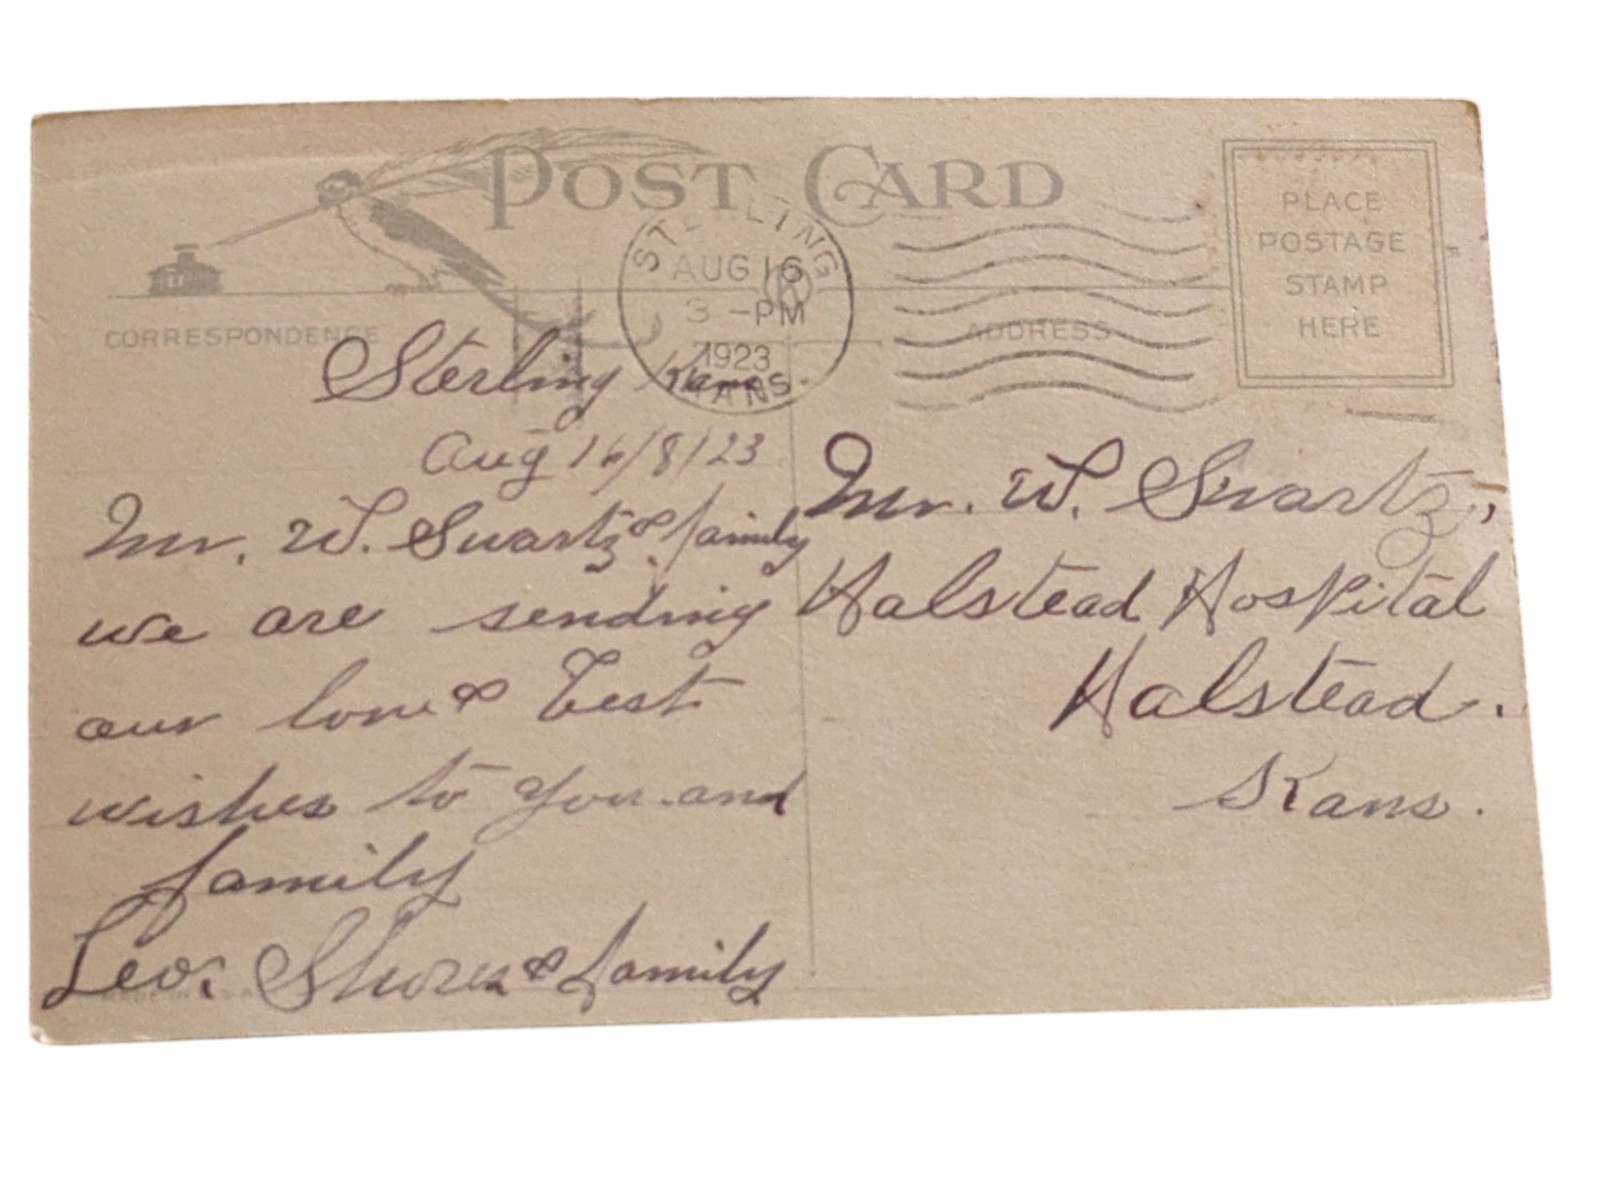 POST CARD
STERLING
AUG 16
3 -PM
1923
KANS.
PLACE
POSTAGE
STAMP
HERE
CORRESPONDENCE
ADDRESS
Sterling Kans
Aug 16/8/23
Mr. W. Swartz & family
we are sending
our love & best
wishes to you and
family
Leo. & family
MADE IN U.S.A.
Mr. W. Swartz,
Halstead Hospital
Halstead.
Kans.